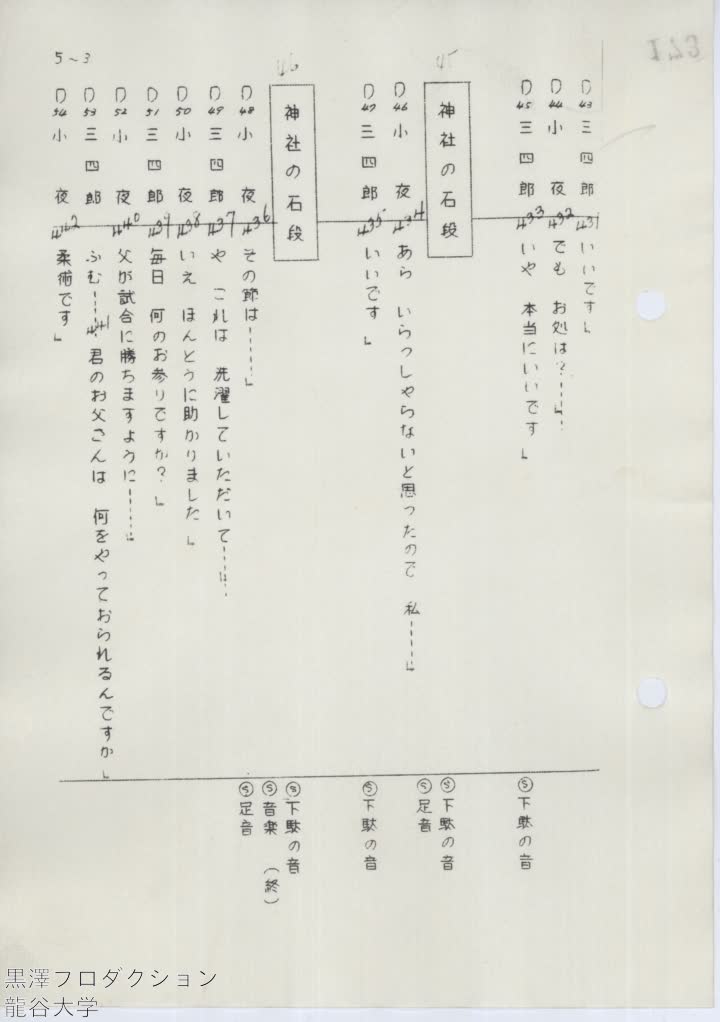 5~3
D43 三四郎 431 いいです」
D44 小夜 432 でも お処は?……」
D45 三四郎 433 いや 本当にいいです」
Ⓢ下駄の音
45
神社の石段
Ⓢ下駄の音
Ⓢ足音
D46 小夜 434 あら いらっしゃらないと思ったので 私……」
D47 三四郎 435 いいです」
Ⓢ下駄の音
46
神社の石段
Ⓢ下駄の音
Ⓢ音楽 (終)
Ⓢ足音
D48 小夜 436 その節は……」
D49 三四郎 437 や これは 洗濯していただいて……」
D50 小夜 438 いえ ほんとうに助かりました」
D51 三四郎 439 毎日 何のお参りですか?」
D52 小夜 440 父が試合に勝ちますように……」
D53 三四郎 441 ふむ……君のお父さんは 何をやっておられるんですか」
D54 小夜 442 柔術です」
黒澤フロダクション
龍谷大学